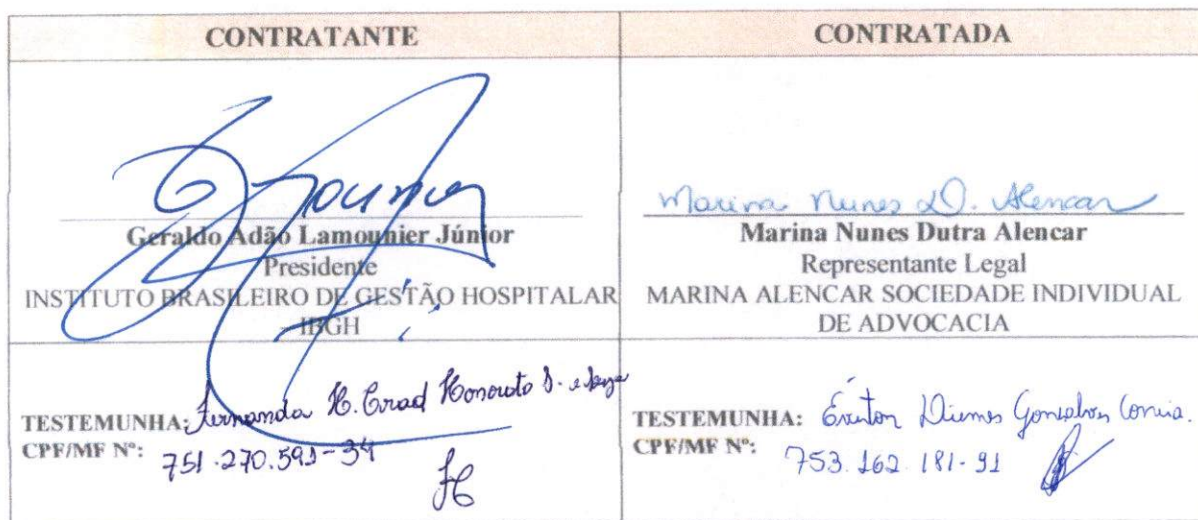 CONTRATANTE
CONTRATADA
Geraldo Adão Lamounier Júnior
Presidente
INSTITUTO BRASILEIRO DE GESTÃO HOSPITALAR
IBGH
Marina Nunes D. Alencar
Marina Nunes Dutra Alencar
Representante Legal
MARINA ALENCAR SOCIEDADE INDIVIDUAL
DE ADVOCACIA
TESTEMUNHA: Fernanda H. Honorato S. e
CPF/MF Nº: 751.270.591-34
TESTEMUNHA: Éverton Diemes Gonçalves Correia.
CPF/MF Nº: 753.162.181-91